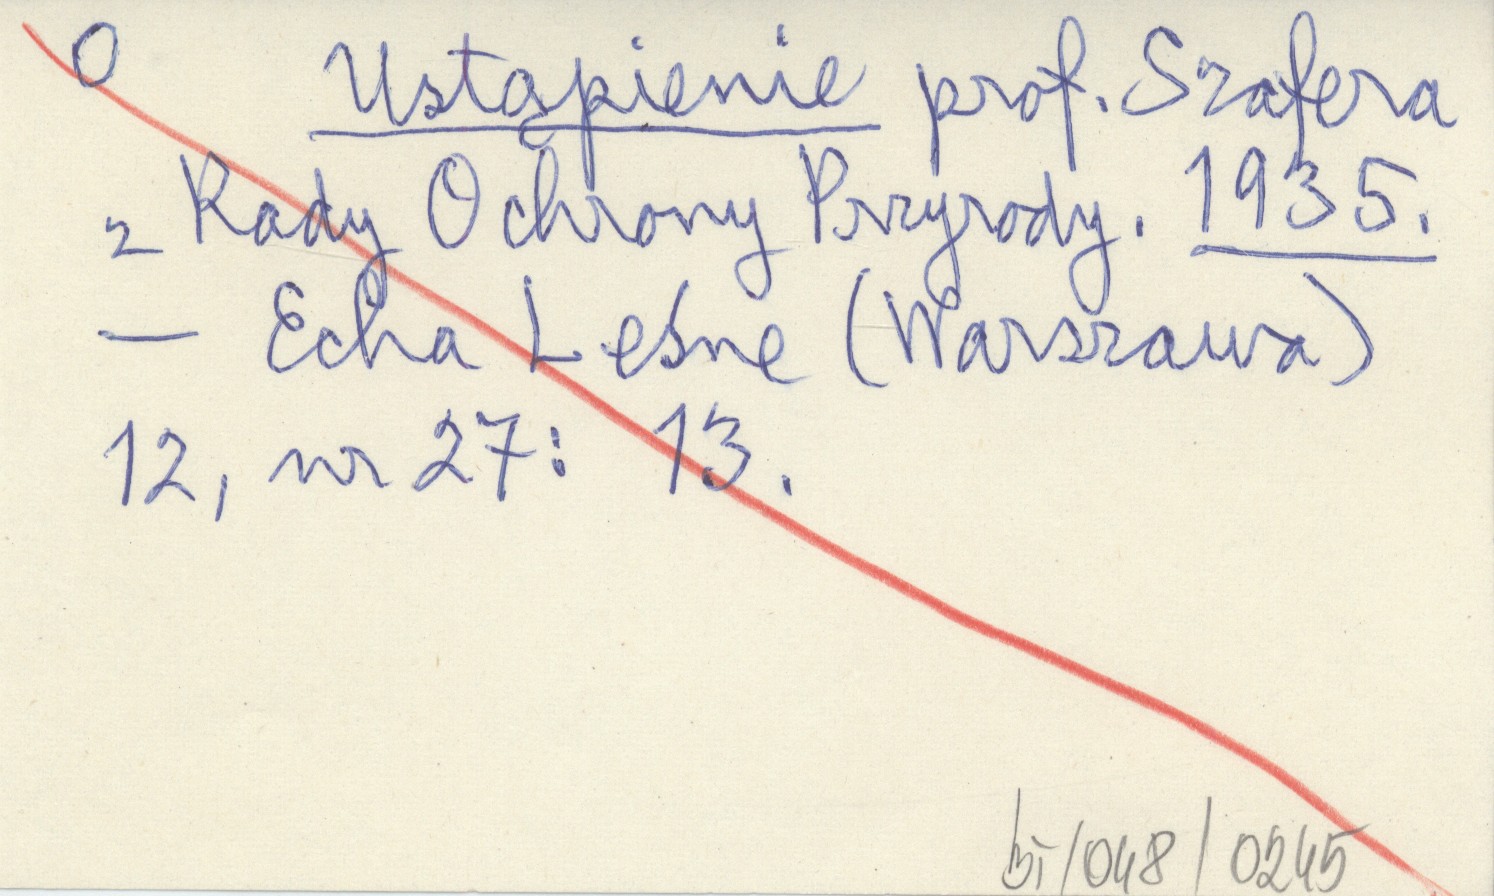 O Ustąpienie prof. Szafera
z Rady Ochrony Przyrody. 1935.
— Echa Leśne (Warszawa)
12, nr 27: 13.
bi/048/0245